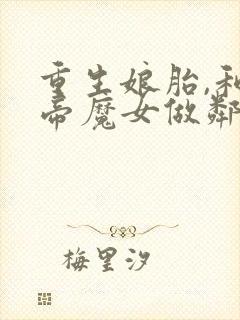 重生娘胎,和
帝魔女做鄰
梅里汐